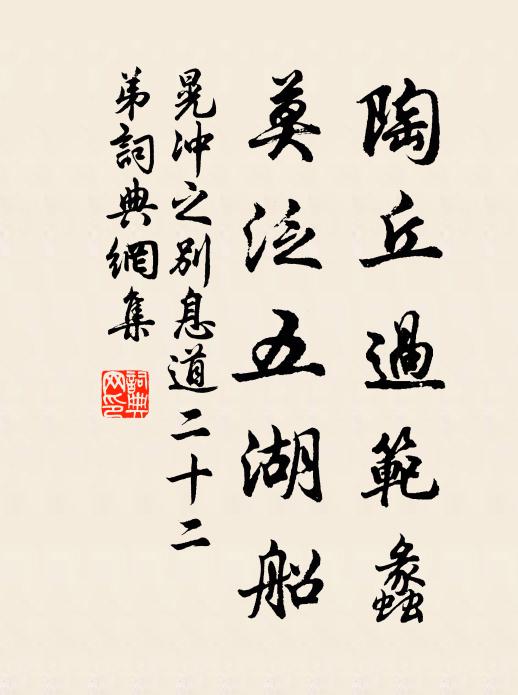 陶丘過範蠡
莫泛五湖船
晃沖之別息道二十二
弟詞典網集
詞典網印